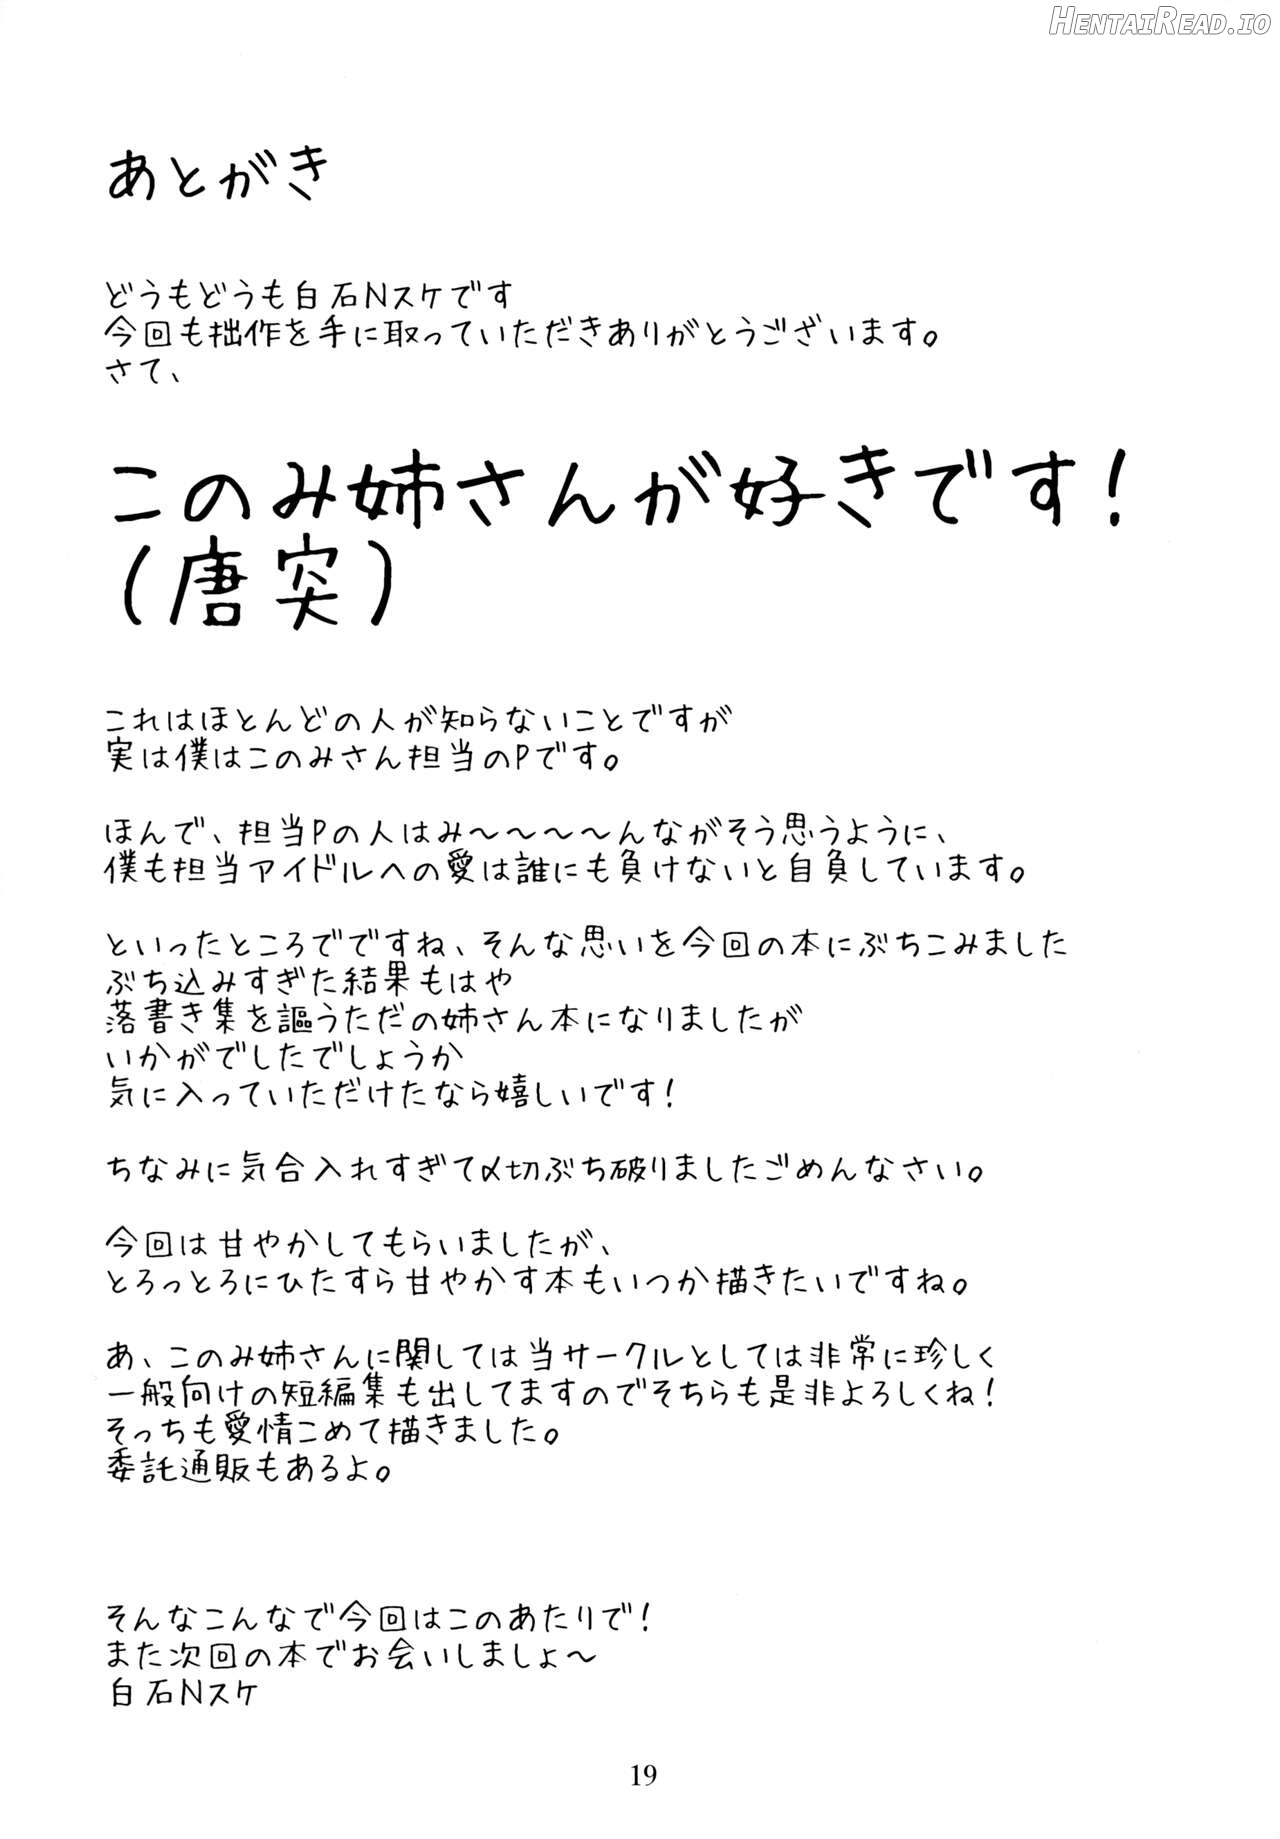 HENTAIREAD.IO
あとがき
どうもどうも白石Nスケです
今回も拙作を手に取っていただきありがとうございます。
さて、
このみ姉さんが好きです！
（唐突）
これはほとんどの人が知らないことですが
実は僕はこのみさん担当のPです。
ほんで、担当Pの人はみ～～～～んながそう思うように、
僕も担当アイドルへの愛は誰にも負けないと自負しています。
といったところでですね、そんな思いを今回の本にぶちこみました
ぶち込みすぎた結果もはや
落書き集を謳うただの姉さん本になりましたが
いかがでしたでしょうか
気に入っていただけたなら嬉しいです！
ちなみに気合入れすぎて〆切ぶち破りましたごめんなさい。
今回は甘やかしてもらいましたが、
とろっとろにひたすら甘やかす本もいつか描きたいですね。
あ、このみ姉さんに関しては当サークルとしては非常に珍しく
一般向けの短編集も出してますのでそちらも是非よろしくね！
そっちも愛情こめて描きました。
委託通販もあるよ。
そんなこんなで今回はこのあたりで！
また次回の本でお会いしましょ～
白石Nスケ
19